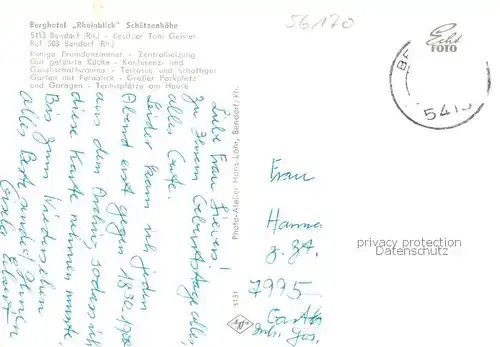 Berghotel „Rheinblick" Schützenhöhe
5413 Bendorf (Rh.) - Besitzer Toni Geisler
Ruf 508 Bendorf (Rh.)
Ruhige Fremdenzimmer - Zentralheizung
Gut geführte Küche - Konferenz- und
Gesellschaftsräume - Terrasse und schattiger
Garten mit Fernblick - Großer Parkplatz
und Garagen - Tennisplätze am Hause
56120
Echt
FOTO
541
Liebe Frau
zu Ihrem Geburtstage alles,
alles Gute.
Leider kam ich jeden
Abend erst gegen 1830-1900
aus dem Dienst, sodass ich
diese Karte nehmen musste.
Bis zum Wiedersehen
alles Beste sendet Ihnen
Photo-Atelier Hans Löhr, Bendorf/Rh.
5131
Frau
Hanna
z. Zt.
7995
privacy protection
Datenschutz